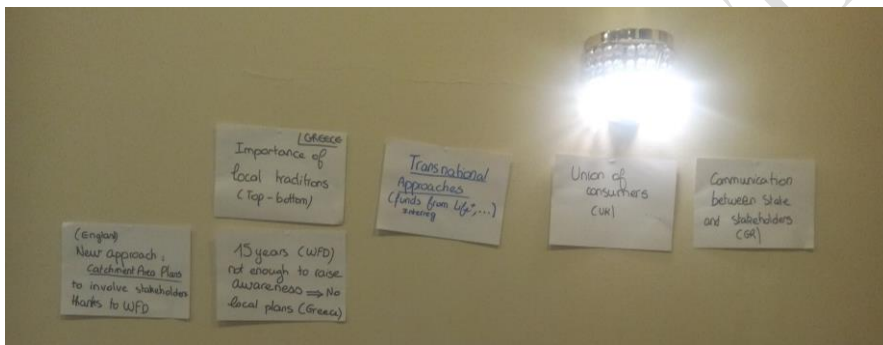 (England)
New approach:
Catchment Area Plans
to involve stakeholders
thanks to WFD
GREECE
Importance of
local traditions
(Top-bottom)
15 years (WFD)
not enough to raise
awareness ⇒ No
local plans (Greece)
Transnational
Approaches
(funds from Life+,...)
Union of
consumers
(UK)
Communication
between State
and stakeholders
(GR)